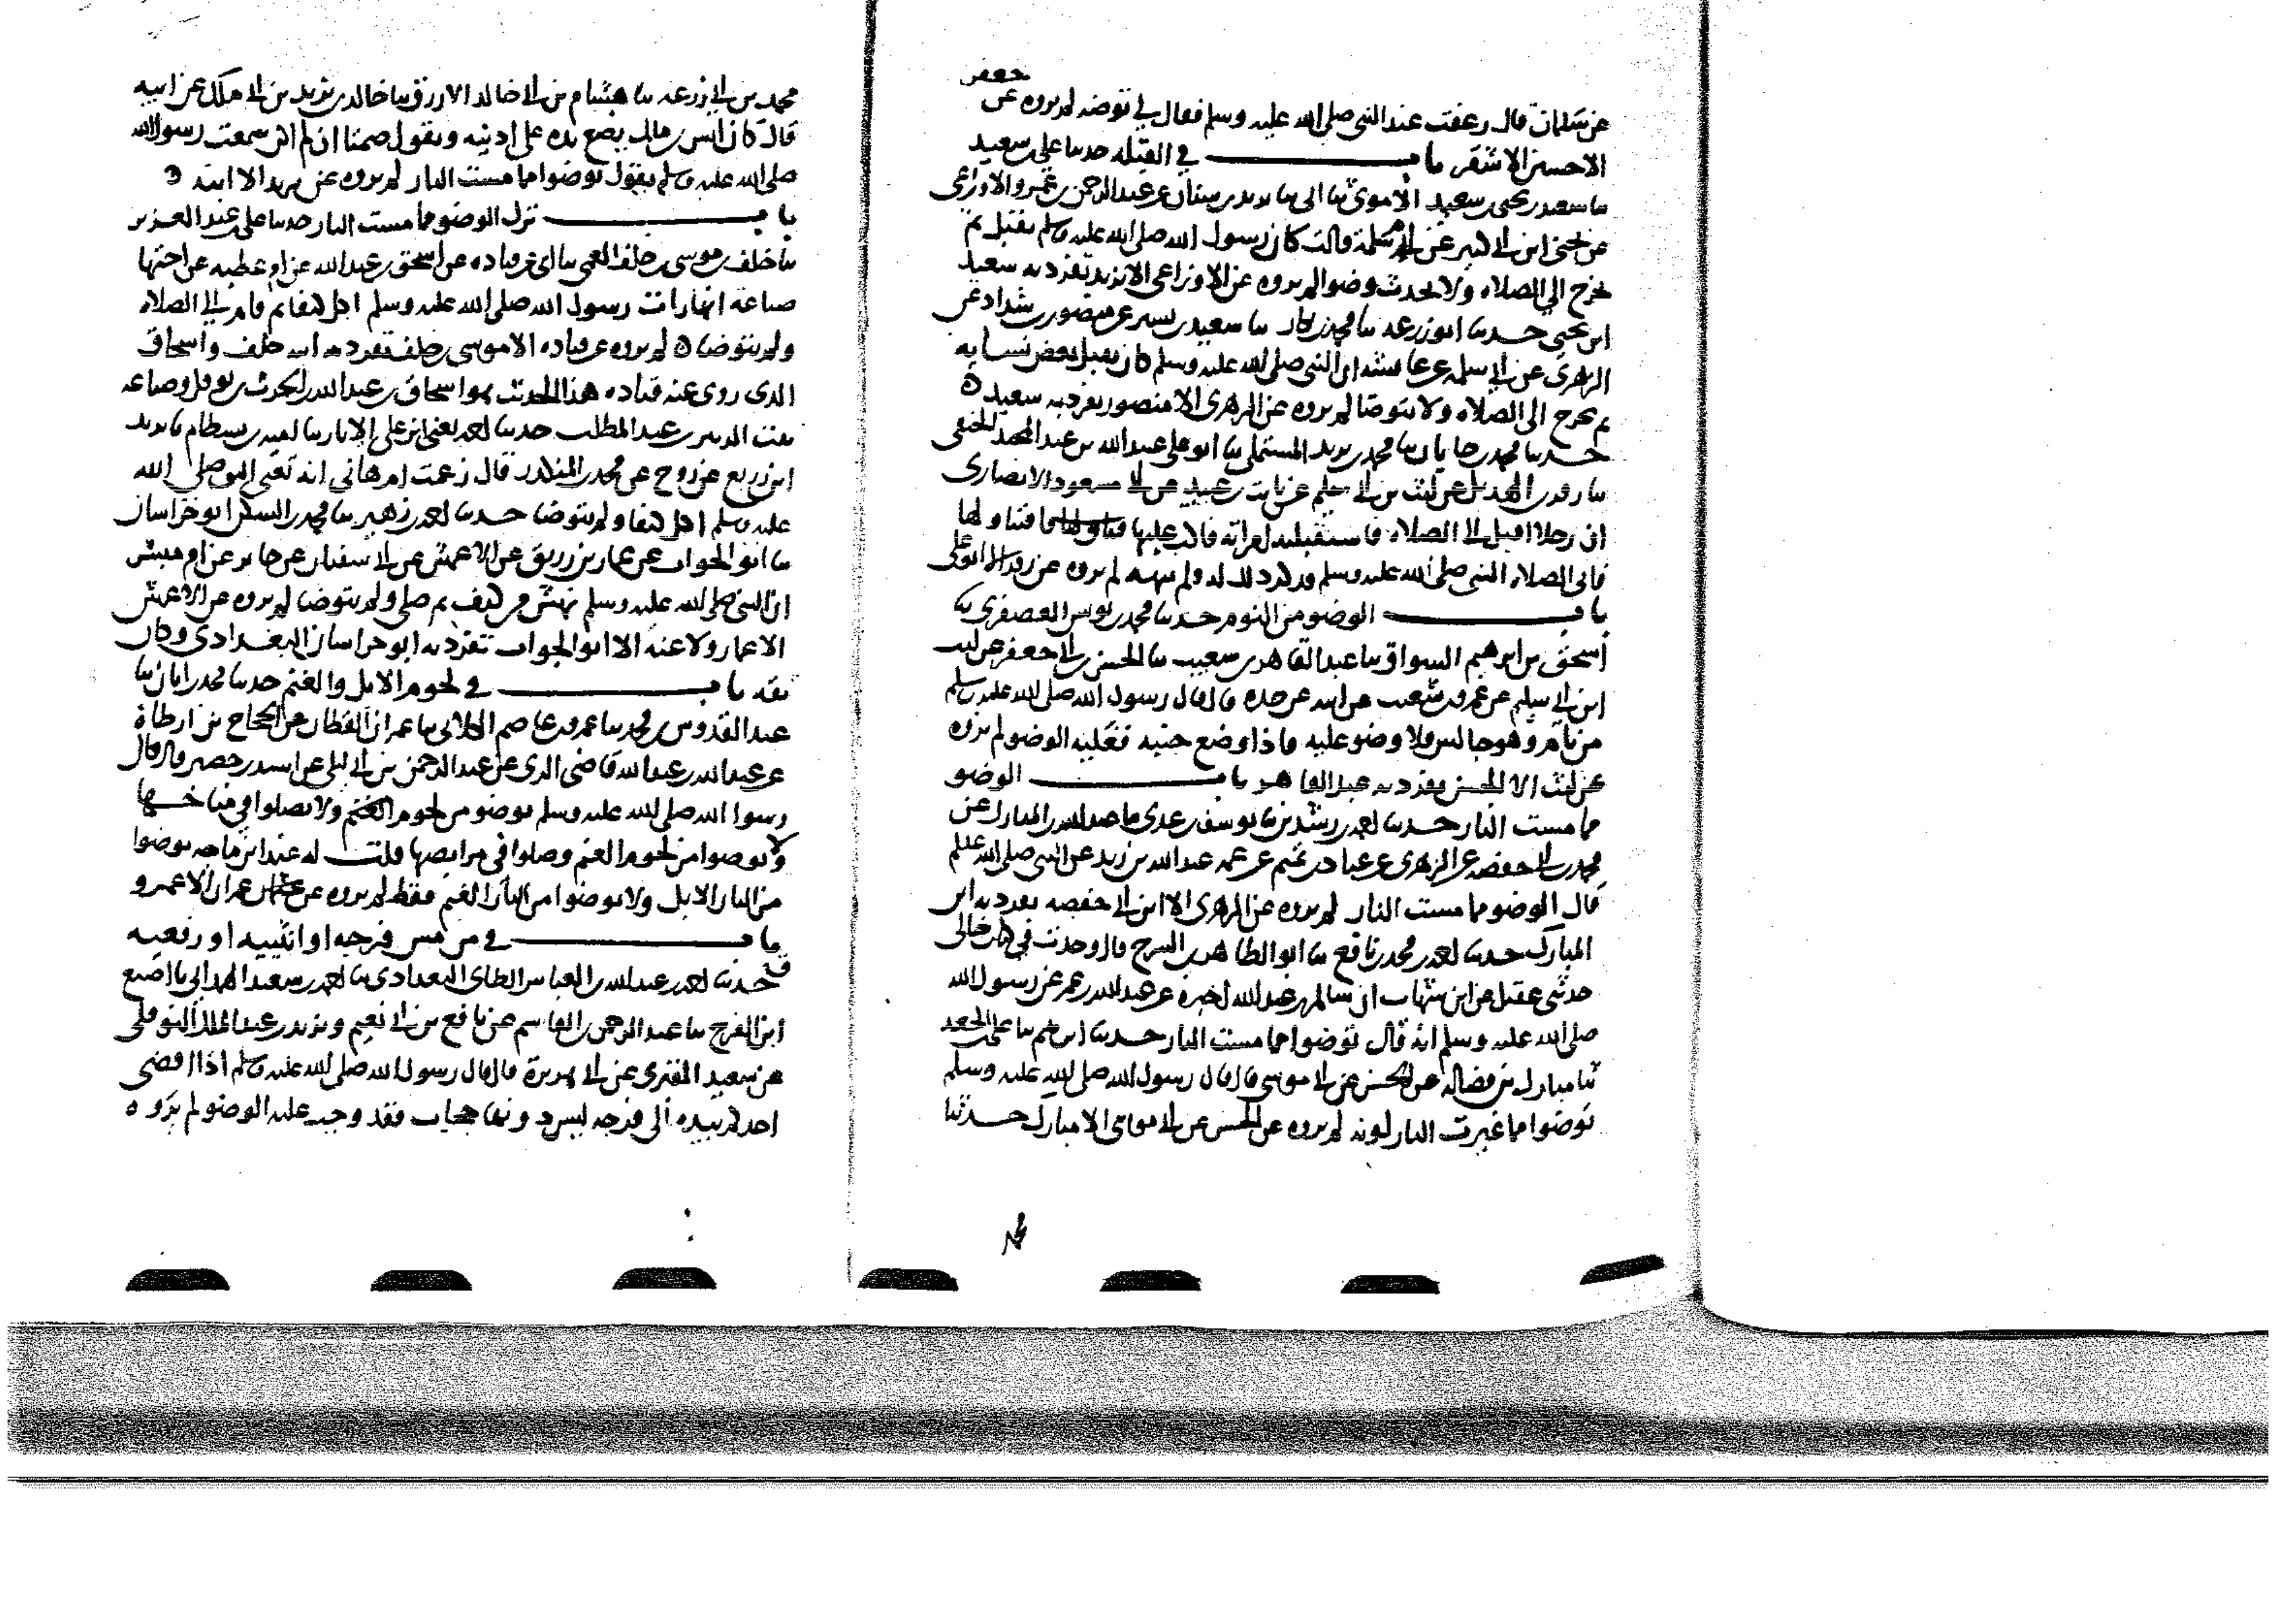 جعفر
عن سلمان قال رعفت عند النبي صلى الله عليه وسلم فقال لي توضه لم يروه عن
الاحسين الاشقر باب في القبله حدثنا علي بن سعيد
ثنا سعيد بن يحيى بن سعيد الاموي ثنا ابي ثنا يزيد بن سنان عن عبد الرحمن بن عمرو الاوزاعي
عن يحيى ابن ابي كثير عن ابي سلمة قالت كان رسول الله صلى الله عليه وسلم يقبل ثم
يخرج الى الصلاه ولا يحدث وضوا لم يروه عن الاوزاعي الا يزيد تفرد به سعيد
ابن يحيى حدثنا ابو زرعه ثنا محمد بن بكار ثنا سعيد بن بشير عن منصور بن شداد عن
الزهري عن ابي سلمه عن عائشه ان النبي صلى الله عليه وسلم كان يقبل بعض نسايه
ثم يخرج الى الصلاه ولا يتوضا لم يروه عن الزهري الا منصور تفرد به سعيد ه
حدثنا محمد بن جابان ثنا محمد بن يزيد المستملي ثنا ابو علي عبد الله بن عبد المجيد الحنفي
ثنا عن ليث بن ابي سليم عن ثابت بن عبيد عن ابي مسعود الانصاري
ان رجلا اقبل الى الصلاه فاستقبلته امراته فاكب عليها فتناولها
فاتى الصلاه النبي صلى الله عليه وسلم فذكر ذلك له ولم ينهه لم يروه عن الا ابو علي
باب الوضو من النوم حدثنا محمد بن يونس العصفري ثنا
اسحق بن ابرهيم السواق ثنا عبد القاهر بن شعيب ثنا الحسن بن ابي جعفر عن ليث
ابن ابي سليم عن عمرو بن شعيب عن ابيه عن جده قال قال رسول الله صلى الله عليه وسلم
من نام وهو جالس فلا وضو عليه فاذا وضع جنبه فعليه الوضو لم يروه
عن ليث الا الحسن تفرد به عبد القاهر باب الوضو
مما مست النار حدثنا احمد بن رشدين ثنا يوسف بن عدي ثنا عبد الله بن المبارك عن
محمد بن ابي حفصه عن الزهري عن عباد بن تميم عن عمه عبد الله بن زيد عن النبي صلى الله عليه وسلم
قال الوضو مما مست النار لم يروه عن الزهري الا ابن ابي حفصه تفرد به ابن
المبارك حدثنا احمد بن محمد بن نافع ثنا ابو الطاهر بن السرح قال وجدت في كتاب خالي
حدثني عقيل عن ابن شهاب ان سالم بن عبد الله اخبره عن عبد الله بن عمر عن رسول الله
صلى الله عليه وسلم انه قال توضوا مما مست النار حدثنا ابرهيم ثنا علي بن الجعد
ثنا مبارك بن فضاله عن الحسن عن ابي موسى قال قال رسول الله صلى الله عليه وسلم
توضوا مما غيرت النار لونه لم يروه عن الحسن عن ابي موسى الا مبارك حدثنا
محمد بن ابي زرعه ثنا هشام بن خالد الازرق ثنا خالد بن يزيد بن ابي ملك عن ابيه
قال كان انس بن مالك يضع يده على اذنيه ويقول صمتا ان لم اكن سمعت رسول الله
صلى الله عليه وسلم يقول توضوا مما مست النار لم يروه عن يزيد الا ابنه ه
باب ترك الوضو مما مست النار حدثنا علي بن عبد العزيز
ثنا خلف بن موسى بن خلف العمي ثنا ابي عن قتاده عن اسحق بن عبد الله عن ام عطيه عن اختها
ضباعه انها رات رسول الله صلى الله عليه وسلم اكل كتفا ثم قام الى الصلاه
ولم يتوضا ه لم يروه عن قتاده الا موسى بن خلف تفرد به ابنه خلف واسحاق
الذي روى عنه قتاده هذا الحديث هو اسحاق بن عبد الله بن الحرث بن نوفل وضباعه
بنت الزبير بن عبد المطلب حدثنا احمد يعني ابن علي الابار ثنا اميه بن بسطام ثنا يزيد
ابن زريع عن روح عن محمد بن المنكدر قال زعمت ام هاني انه تعني النبي صلى الله
عليه وسلم اكل كتفا ولم يتوضا حدثنا احمد بن زهير ثنا محمد بن السكن ابو خراسان
ثنا ابو الجواب عن عمار بن زريق عن الاعمش عن ابي سفيان عن جابر عن ام مبشر
ان النبي صلى الله عليه وسلم نهش من كتف ثم صلى ولم يتوضا لم يروه عن الاعمش
الا عمار ولا عنه الا ابو الجواب تفرد به ابو خراسان البغدادي وكان
ثقه باب في لحوم الابل والغنم حدثنا محمد بن ابان ثنا
عبد القدوس بن محمد ثنا عمرو بن عاصم الكلابي ثنا عمران القطان عن الحجاج بن ارطاة
عن عبد الله بن عبد الله قاضي الري عن عبد الرحمن بن ابي ليلى عن اسيد بن حضير قال قال
رسول الله صلى الله عليه وسلم توضو من لحوم الغنم ولا تصلوا في مناخها
ولا توضوا من لحوم الغنم وصلوا في مرابضها قلت له عند ابن ماجه توضوا
من البان الابل ولا توضوا من البان الغنم فقط لم يروه عن عمران الا عمرو
باب في من مس فرجه او انثييه او رفغيه
حدثنا احمد بن عبد الله بن العباس الطاي البغدادي ثنا احمد بن سعيد الهمداني ثنا اصبغ
ابن الفرج ثنا عبد الرحمن بن القاسم عن نافع بن ابي نعيم ويزيد بن عبد الملك النوفلي
عن سعيد المقبري عن ابي هريرة قال قال رسول الله صلى الله عليه وسلم اذا افضى
احدكم بيده الى فرجه ليس دونها حجاب فقد وجب عليه الوضو لم يروه